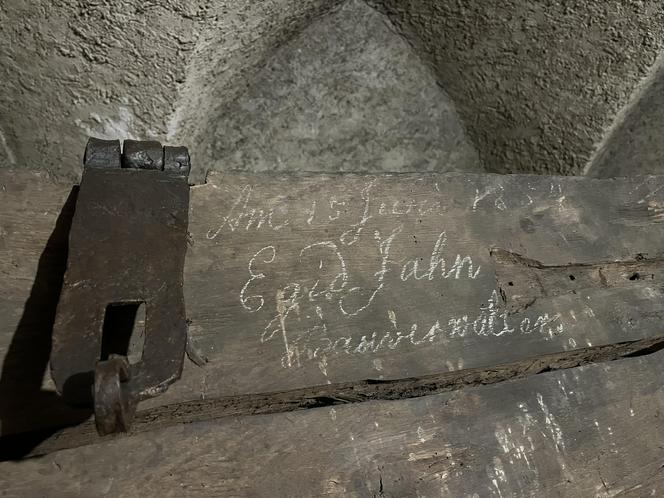 Am 15 Juni 1854
Egid Jahn
Bauverwalter